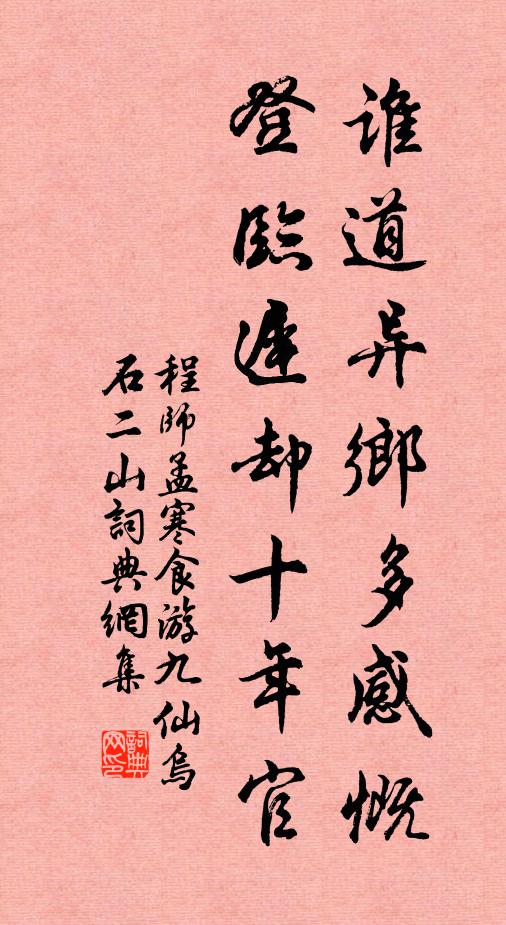 誰道异鄉多感慨
登臨遲却十年官
程師孟寒食游九仙烏
石二山詞典網集
詞典
网印